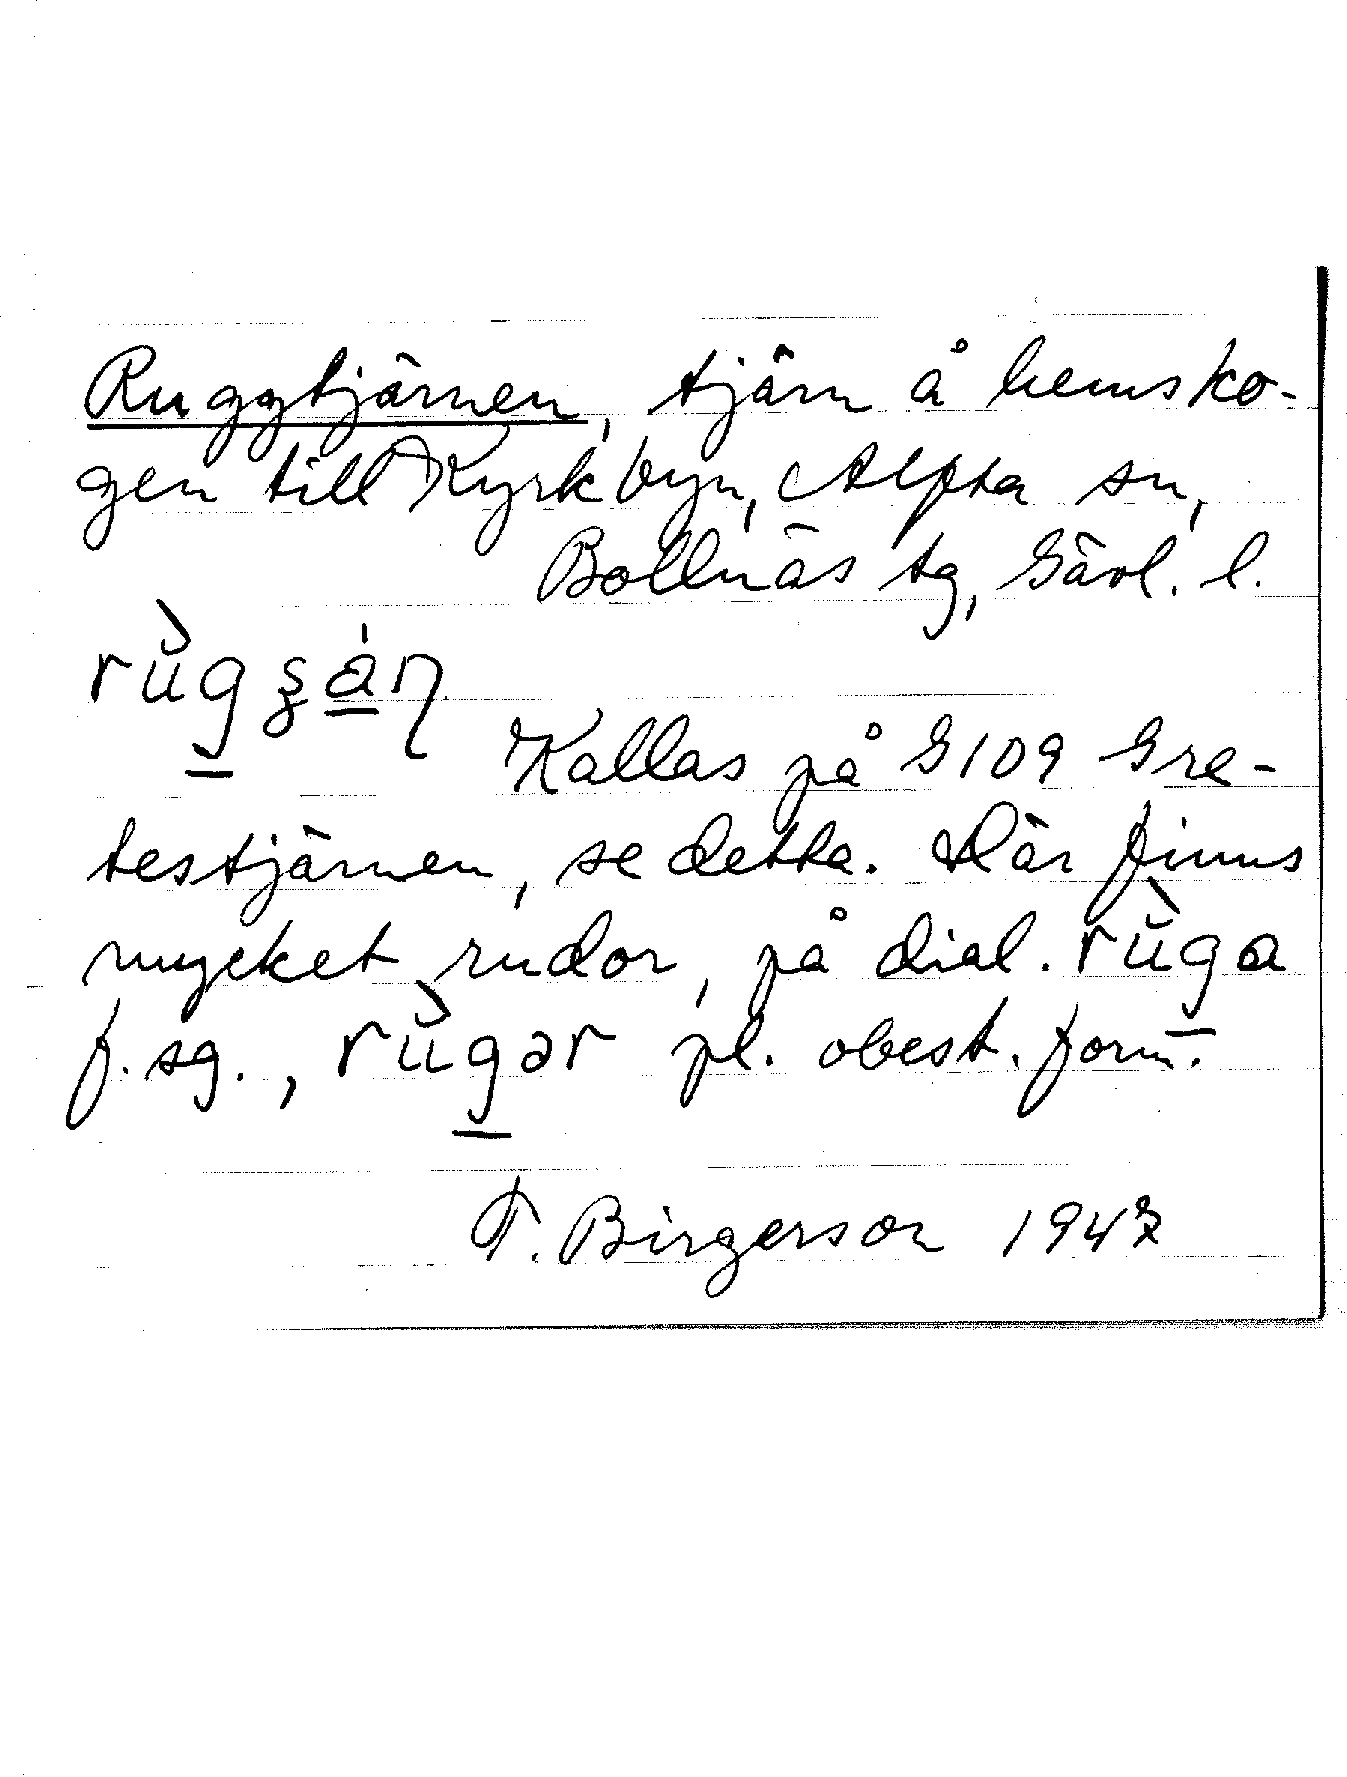 Ruggtjärnen, tjärn å hemsko-
gen till Kyrkbyn, Alfta sn,
Bollnäs tg, Gävl. l.
rùgʂán
Kallas på G109 Gre-
testjärnen, se detta. Där finns
mycket rudor, på dial. rùga
f. sg., rùgər pl. obest. form.
T. Birgerson 1947